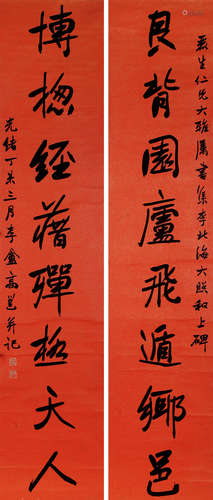 生仁兄大雅屬書集李北海大照和上碑
艮背園廬飛遁鄉邑
博揔經藉殫極天人
光緒丁未三月李盦高邕并記